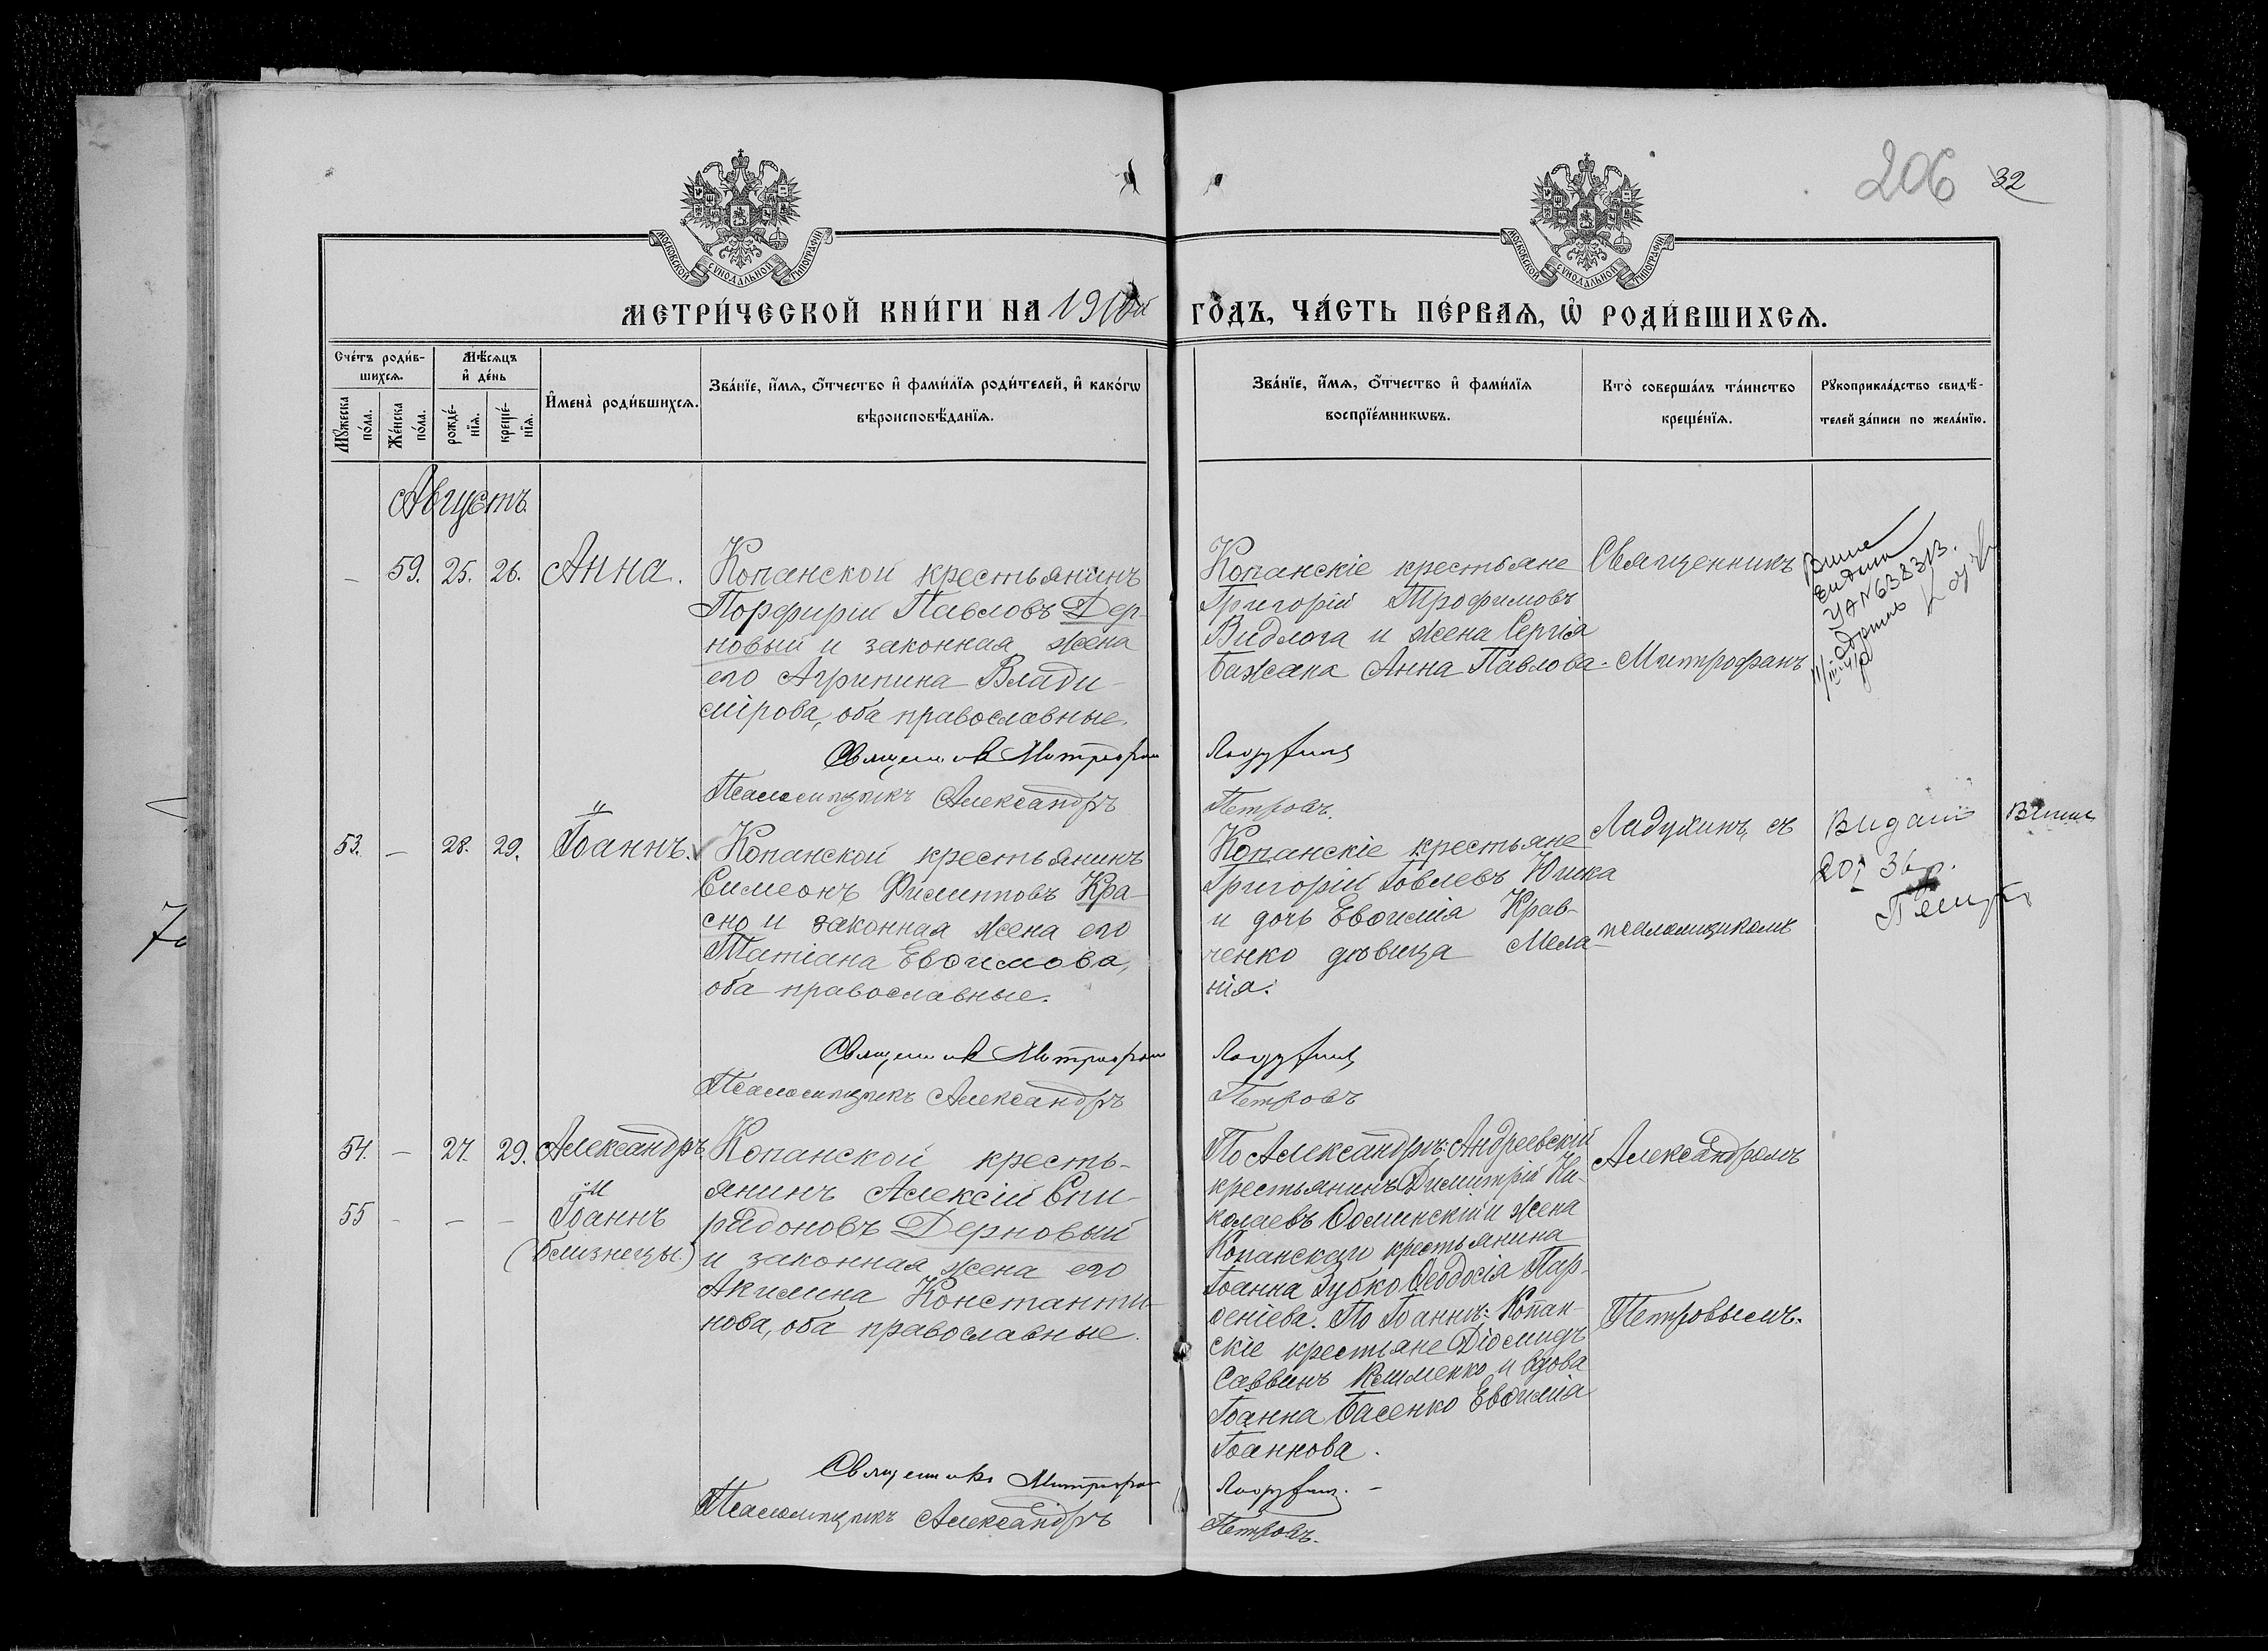 206 32
МОСКОВСКОЙ СѴНОДАЛЬНОЙ ТИПОГРАФІИ
МОСКОВСКОЙ СѴНОДАЛЬНОЙ ТИПОГРАФІИ
МЕТРИ́ЧЕСКОЙ КНИ́ГИ НА 1910й ГО́ДЪ, ЧА́СТЬ ПЕ́РВАѦ, Ѿ РОДИ́ВШИХСѦ.
Сче́тъ роди́в-
шихсѧ.
Мꙋ́жеска по́ла.
Же́нска по́ла.
Мѣ́сѧцъ
и҆ де́нь
рожде́-
нїѧ.
креще́-
нїѧ.
И҆мена̀ роди́вшихсѧ.
Зва́нїе, и҆́мѧ, ѻ҆́тчество и҆ фами́лїѧ роди́телей, и҆ како́гѡ
вѣроисповѣ́данїѧ.
Зва́нїе, и҆́мѧ, ѻ҆́тчество и҆ фами́лїѧ
воспрїе́мникѡвъ.
Кто̀ соверша́лъ та́инство
креще́нїѧ.
Рꙋкоприкла́дство свидѣ́-
телей за́писи по жела́нїю.
Августъ.
– 59. 25. 26. Анна.
Копанской крестьянинъ
Порфирій Павловъ Дер-
новый и законная жена
его Агрипина Влади-
мірова, оба православные.
Священникъ Митрофан
Псаломщикъ Александръ
Копанскіе крестьяне
Григорій Трофимовъ
Видлога и жена Сергія
Бажана Анна Павлова.
Ладухинъ
Петровъ.
Священникъ
Митрофанъ
53. – 28. 29. Іоаннъ.
Копанской крестьянинъ
Симеонъ Филипповъ Кра-
сно и законная жена его
Татіана Евѳимова,
оба православные.
Священникъ Митрофан
Псаломщикъ Александръ
Копанскіе крестьяне
Григорій Іовлевъ Юшка
и дочь Евѳимія Крав-
ченко дѣвица Мела-
нія.
Ладухинъ
Петровъ
Ладухинъ съ
псаломщикомъ
Видан
20/I 36 р.
54. – 27. 29. Александръ
и
55 – – – Іоаннъ
(близнецы.)
Копанской кресть-
янинъ Алексій Спи-
ридоновъ Дерновый
и законная жена его
Акилина Константи-
нова, оба православные.
Священникъ Митрофан
Псаломщикъ Александръ
По Александрѣ: Андреевскій
крестьянинъ Димитрій Ни-
колаевъ Осминскій и жена
Копанскаго крестьянина
Іоанна Зубко Ѳеодосія Пар-
ѳеніева. По Іоаннѣ: Копан-
скіе крестьяне Діомидъ
Саввинъ Клименко и вдова
Іоанна Басенко Евѳимія
Іоаннова.
Ладухинъ.
Петровъ.
Александромъ
Петровымъ.